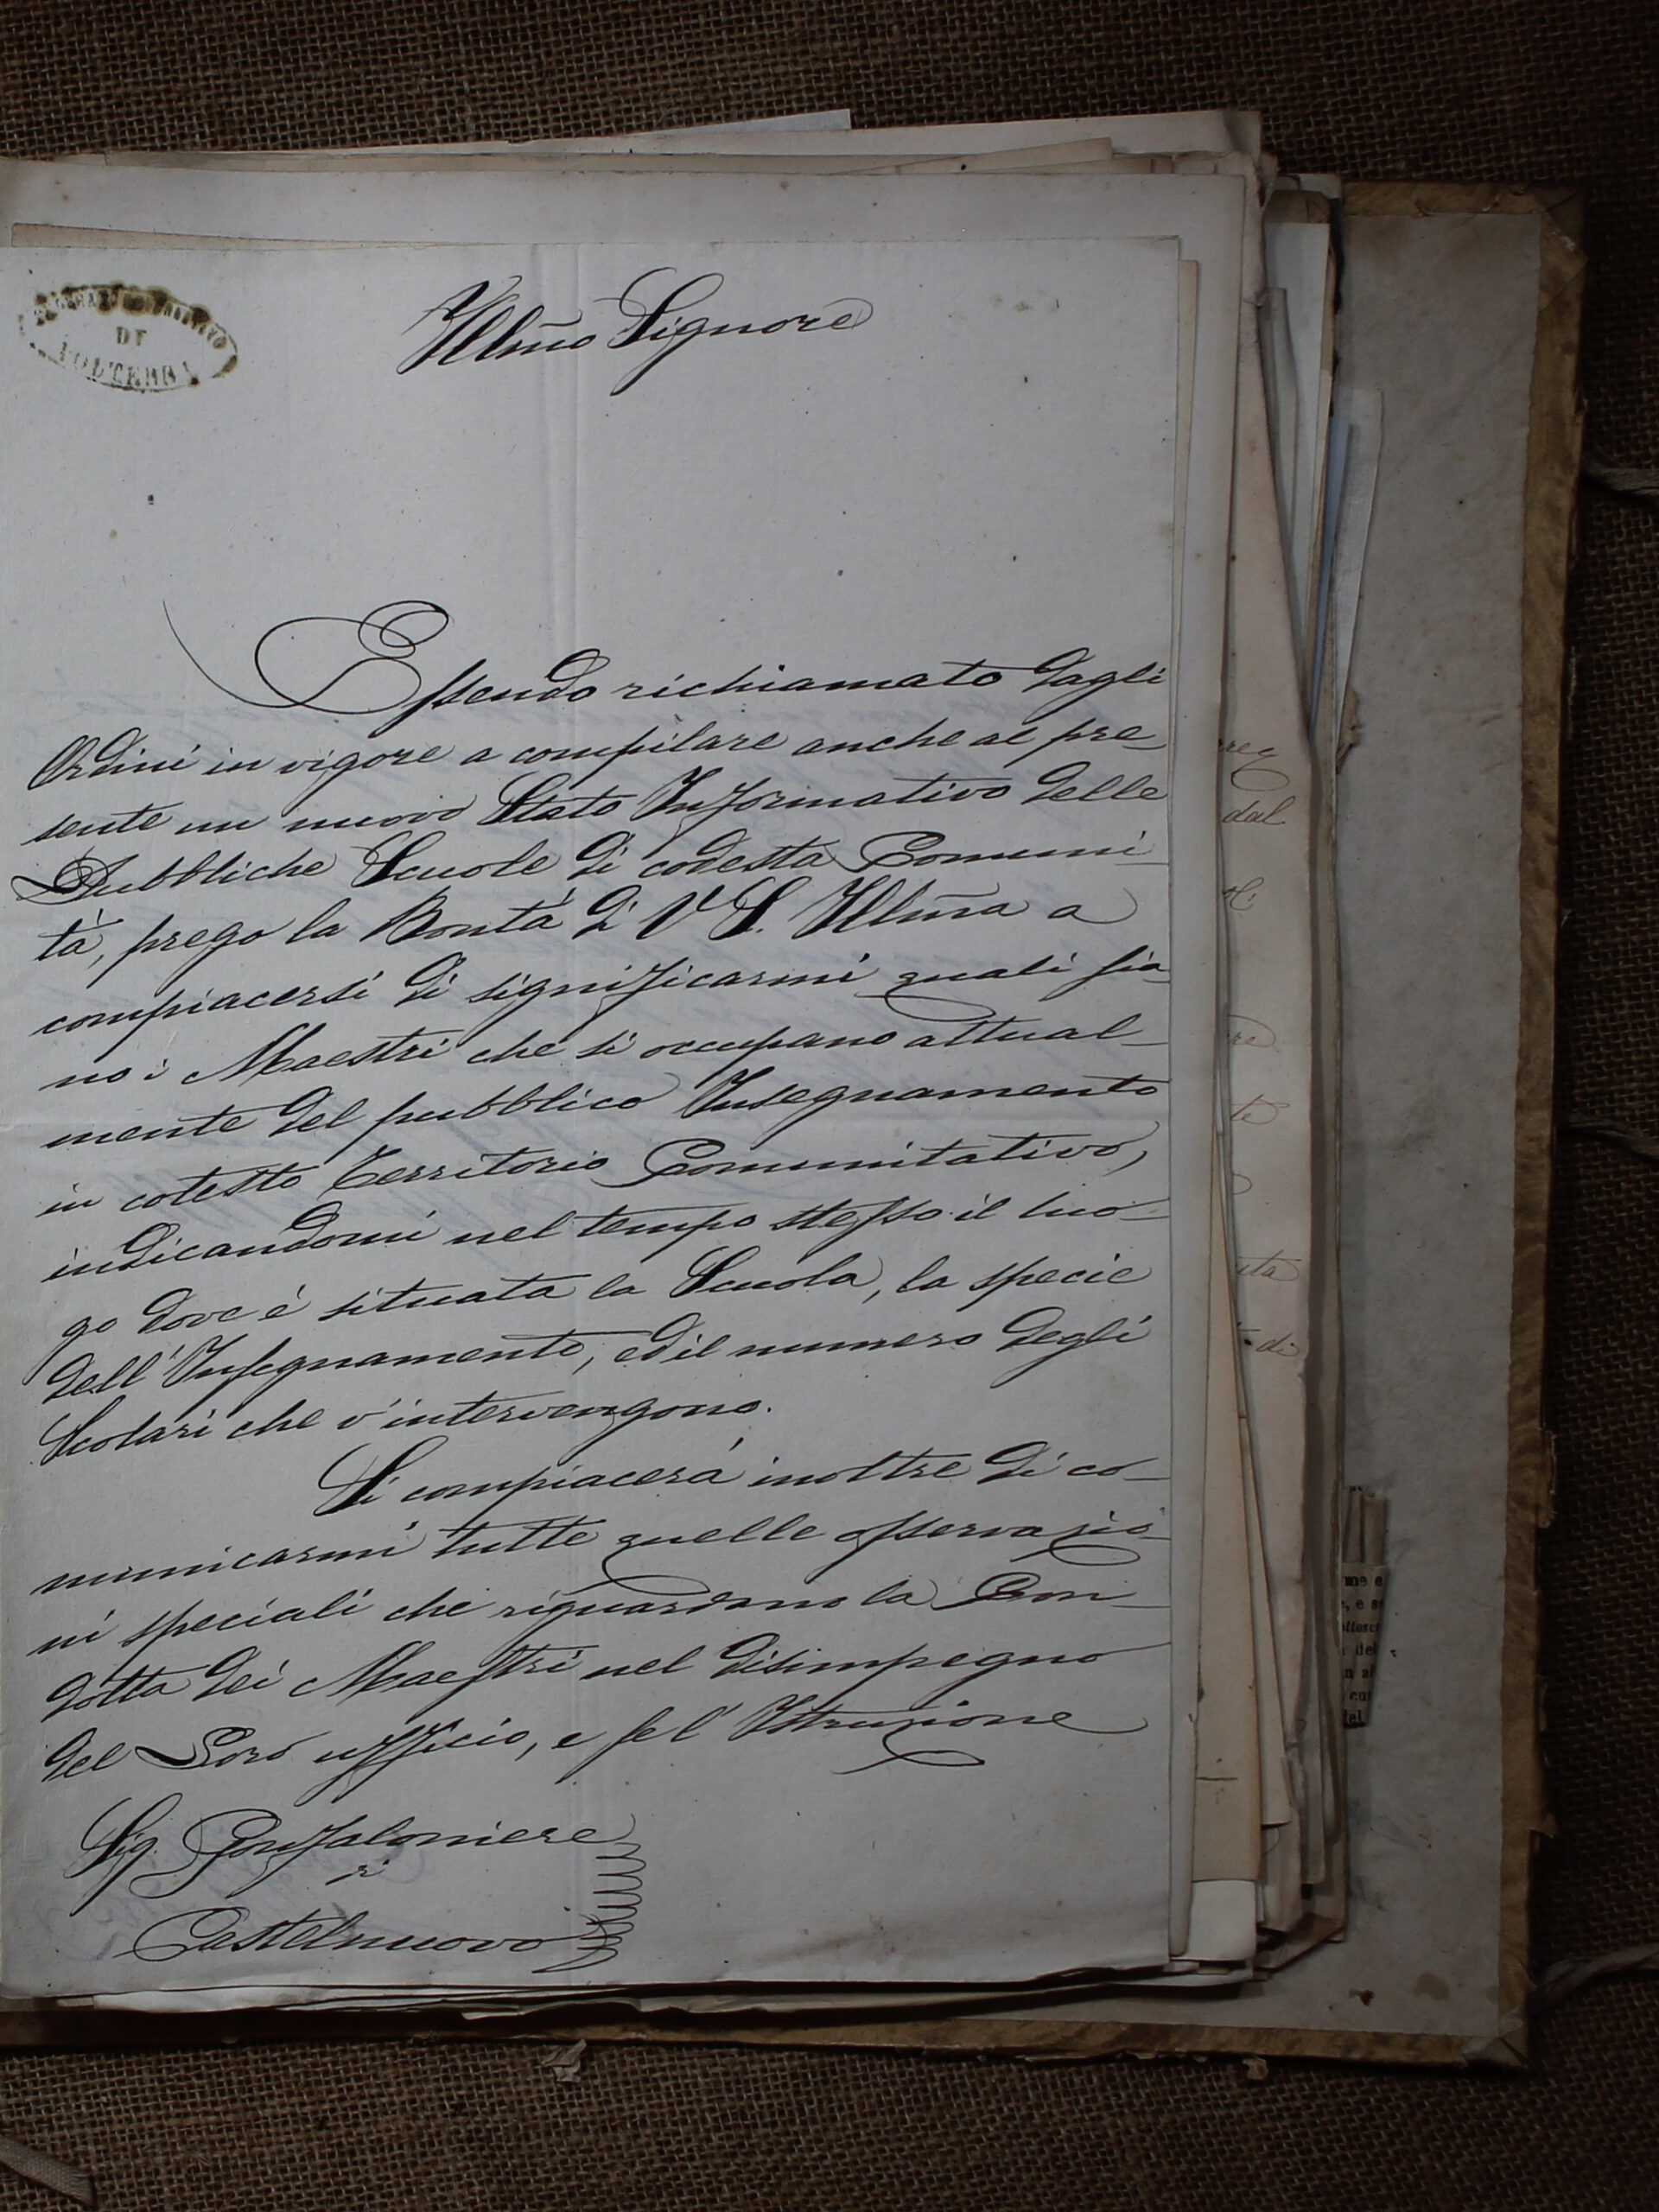 DI
VOLTERRA
Illmo Signore
Essendo richiamato dagli
Ordini in vigore a compilare anche al pre-
sente un nuovo Stato Informativo delle
Pubbliche Scuole di codesta Comuni-
tà, prego la Bontà di V S. Illma a
compiacersi di significarmi quali sia-
no i Maestri che si occupano attual-
mente del pubblico Insegnamento
in cotesto Territorio Comunitativo,
indicandomi nel tempo stesso il luo-
go dove è situata la Scuola, la specie
dell'Insegnamento, ed il numero degli
Scolari che v'intervengono.
Si compiacerà inoltre di co-
municarmi tutte quelle osservazio-
ni speciali che riguardano la Con-
dotta dei Maestri nel disimpegno
del Loro ufficio, e se l'Istruzione
Sig. Gonfaloniere
di
Castelnuovo
dal
di